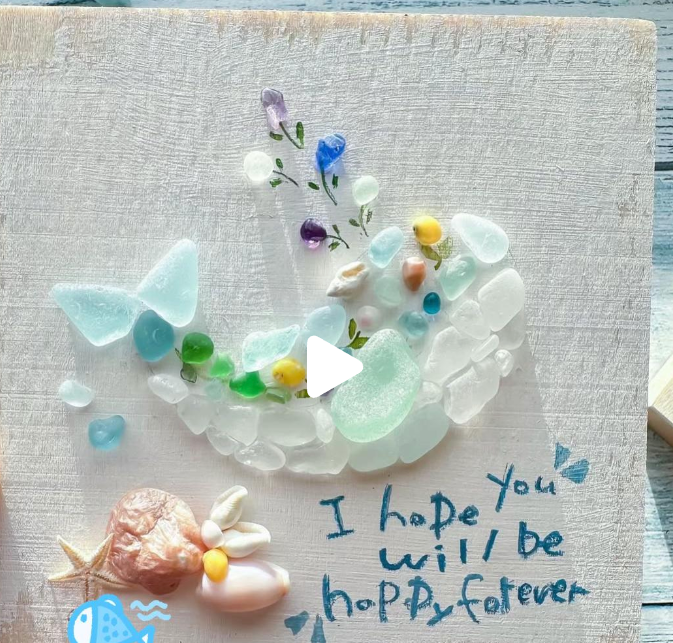 I hope you
will be
happy forever